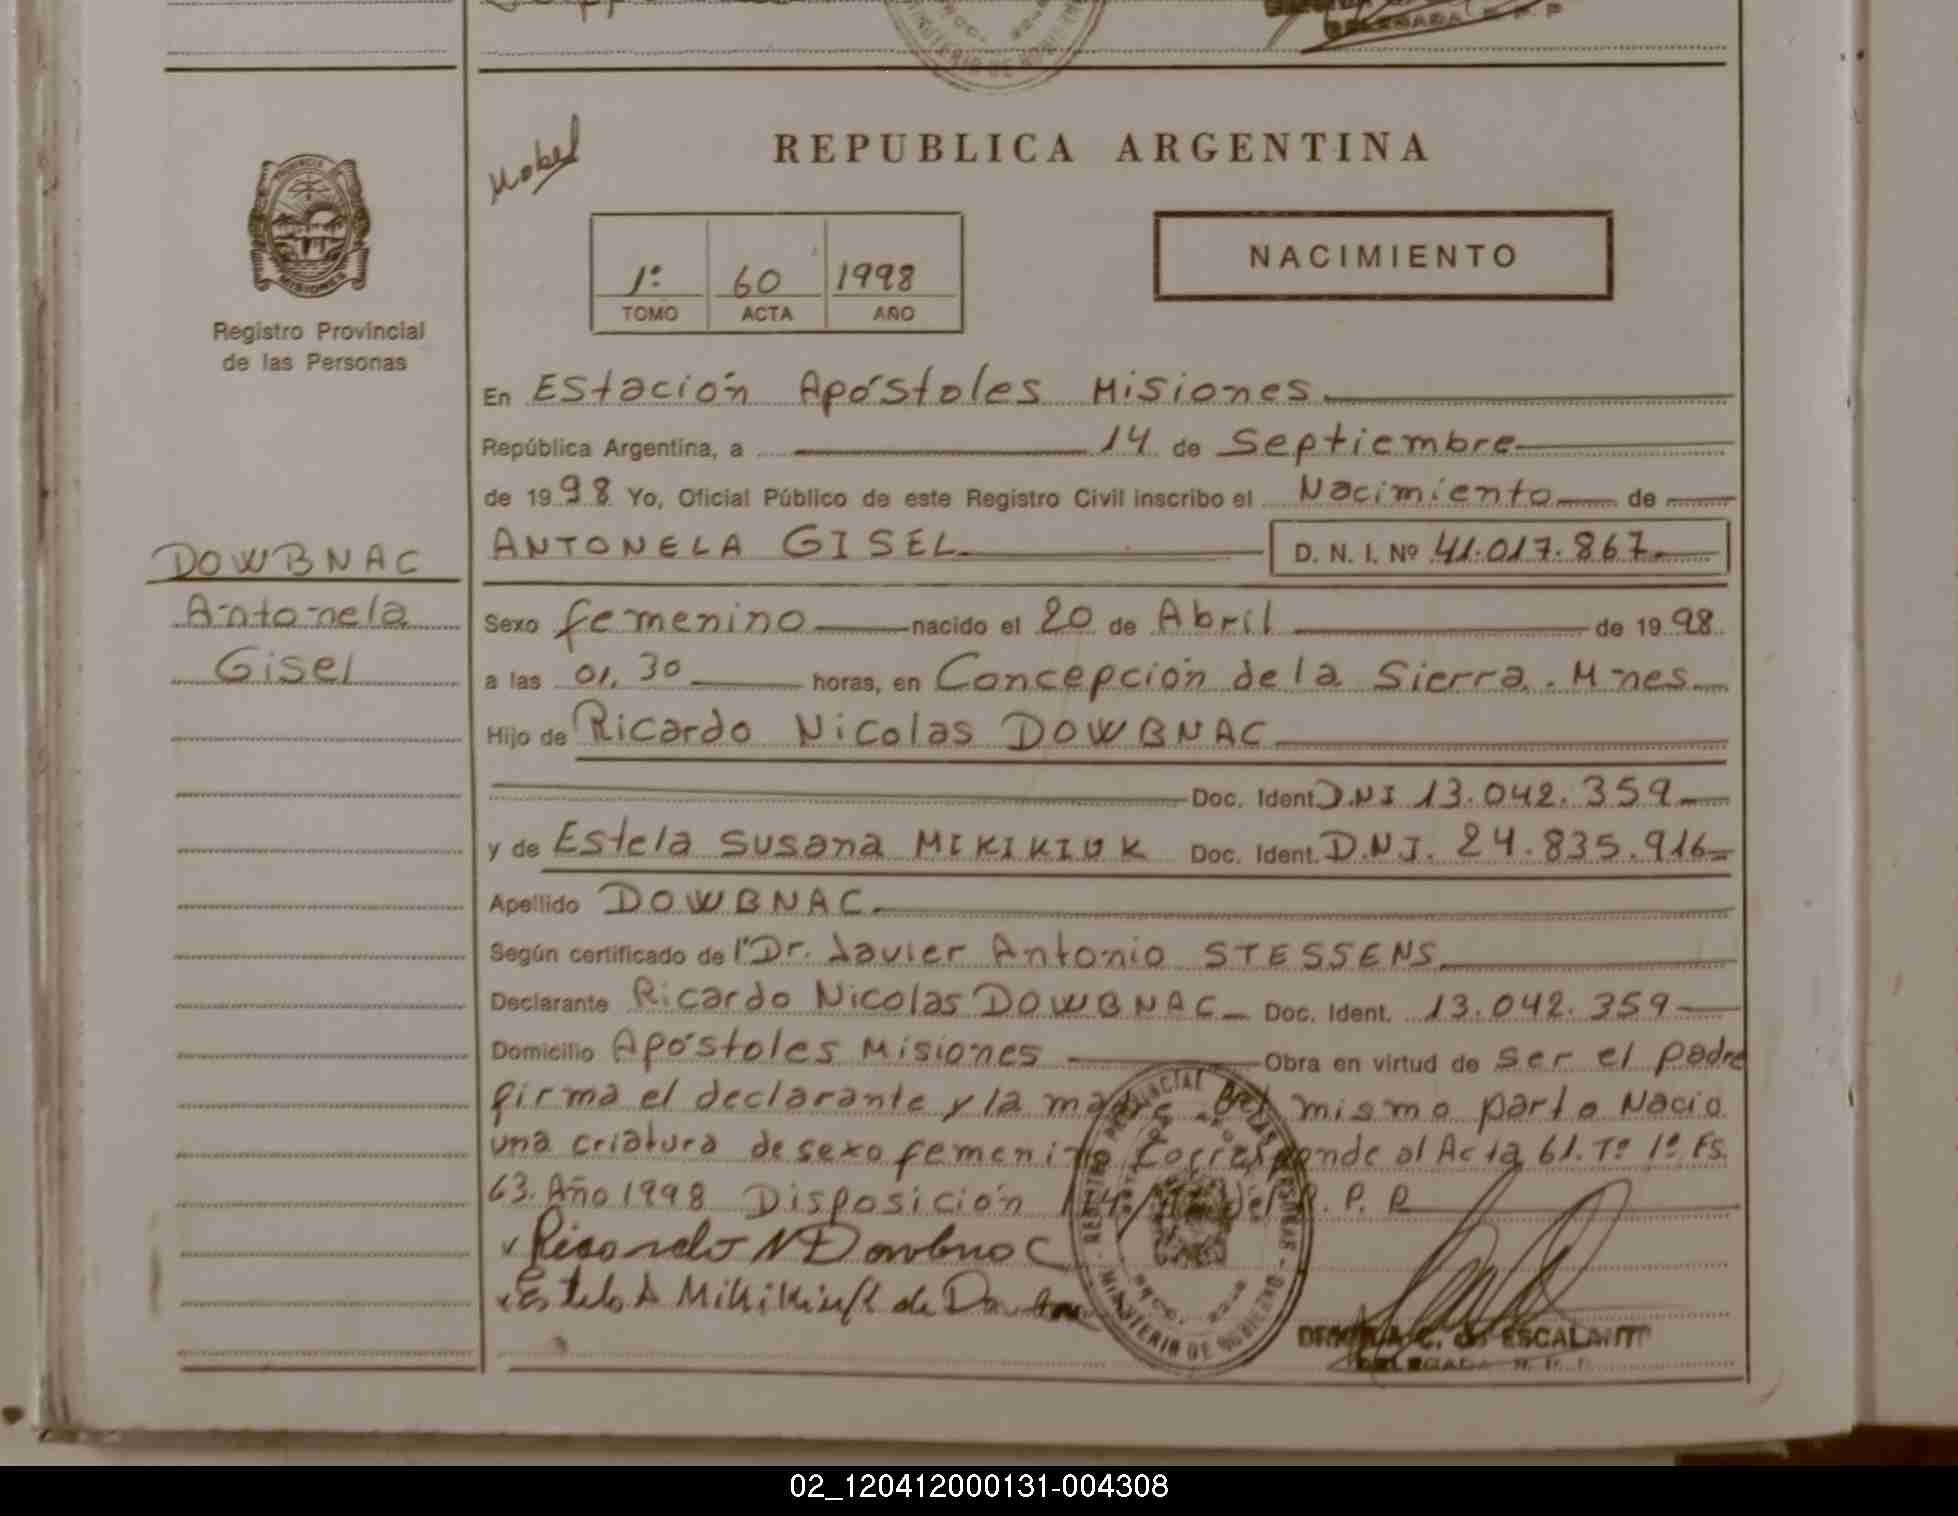 DELEGADA R. P. P.
MINISTERIO DE GOBIERNO
Mabel
REPUBLICA ARGENTINA
PROVINCIA
MISIONES
Registro Provincial
de las Personas
1º 60 1998
TOMO ACTA AÑO
NACIMIENTO
En Estación Apóstoles Misiones
República Argentina, a 14 de Septiembre
de 1998 Yo, Oficial Público de este Registro Civil inscribo el Nacimiento de
DOWBNAC
Antonela
Gisel
ANTONELA GISEL D. N. I. Nº 41.017.867
Sexo femenino nacido el 20 de Abril de 1998
a las 01,30 horas, en Concepción de la Sierra. M-nes
Hijo de Ricardo Nicolas DOWBNAC
Doc. Ident. D.N.I 13.042.359
y de Estela Susana MIKIKIUK Doc. Ident. D.N.I. 24.835.916
Apellido DOWBNAC
Según certificado del Dr. Javier Antonio STESSENS
Declarante Ricardo Nicolas DOWBNAC Doc. Ident. 13.042.359
Domicilio Apóstoles Misiones Obra en virtud de ser el padre
firma el declarante y la madre Del mismo parto Nacio
una criatura de sexo femenino Corresponde al Acta 61. Tº 1º Fs.
63. Año 1998 Disposición del R. P. P
Ricardo N Dowbnac
Estela S Mikikiuk de
REGISTRO PROVINCIAL DE LAS PERSONAS
MINISTERIO DE GOBIERNO
C. de ESCALANTE
DELEGADA R. P. P.
02_120412000131-004308